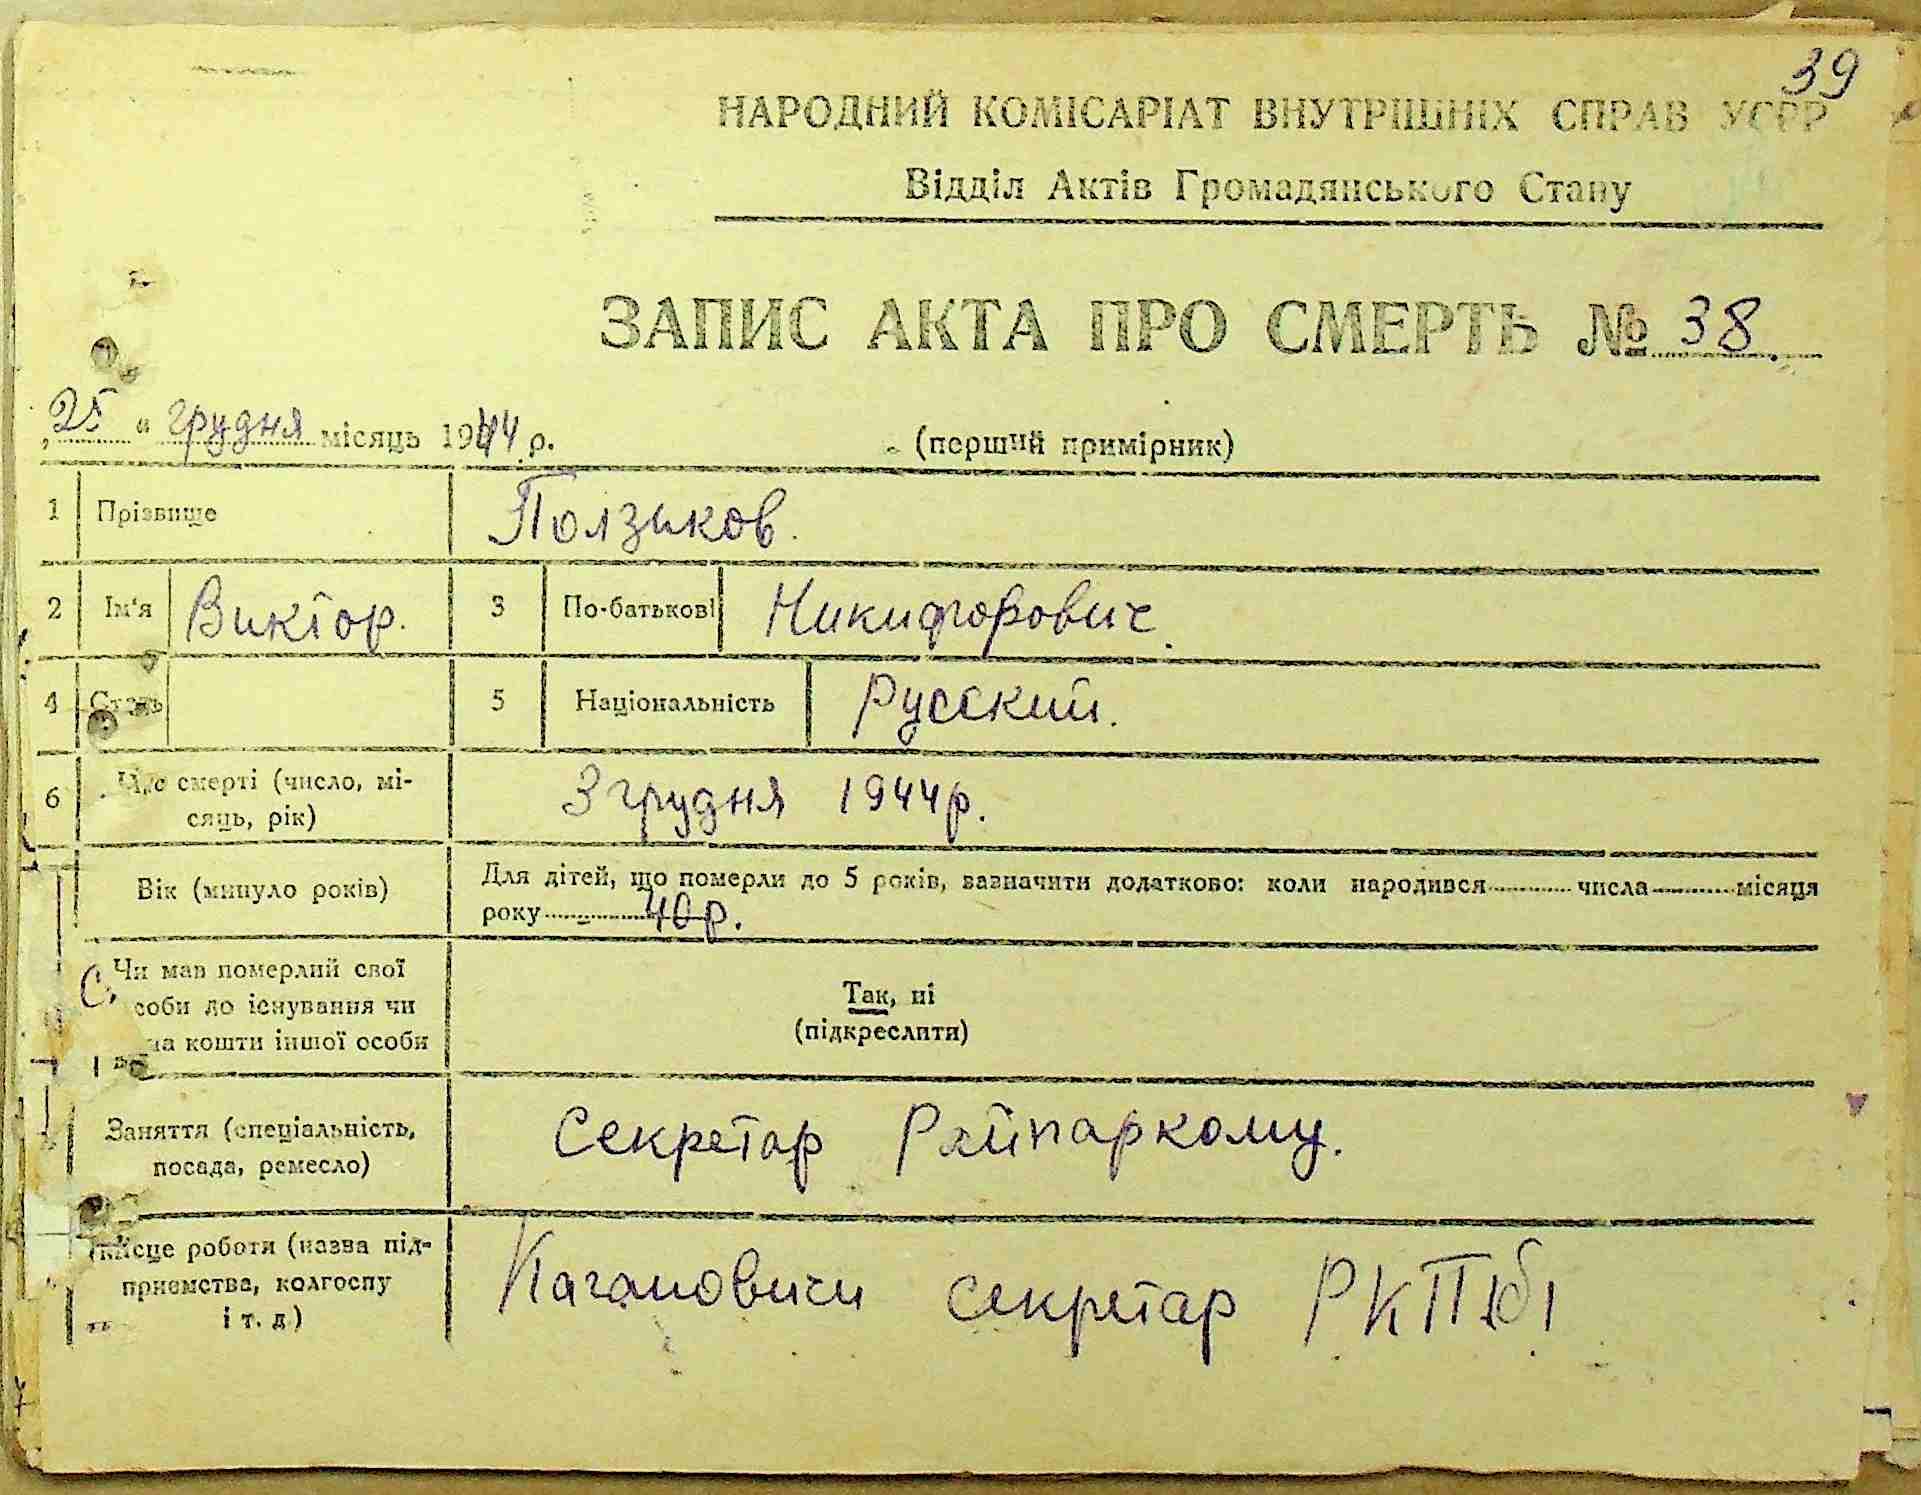 39
НАРОДНИЙ КОМІСАРІАТ ВНУТРІШНІХ СПРАВ УСРР
Відділ Актів Громадянського Стану
ЗАПИС АКТА ПРО СМЕРТЬ № 38
„25“ грудня місяць 1944 р.
(перший примірник)
1 Прізвище Ползиков.
2 Ім'я Виктор. 3 По-батькові Никифорович.
4 Стать 5 Національність Русский.
6 смерті (число, мі-
сяць, рік) 3 грудня 1944 р.
Вік (минуло років) Для дітей, що померли до 5 років, зазначити додатково: коли народився числа місяця
року 40 р.
Чи мав померлий свої
соби до існування чи
на кошти іншої особи
Так, ні
(підкреслити)
Заняття (спеціальність,
посада, ремесло) Секретар Райпаркому.
Місце роботи (назва під-
приємства, колгоспу
і т. д.) Кагановичи секретар РКП(б)